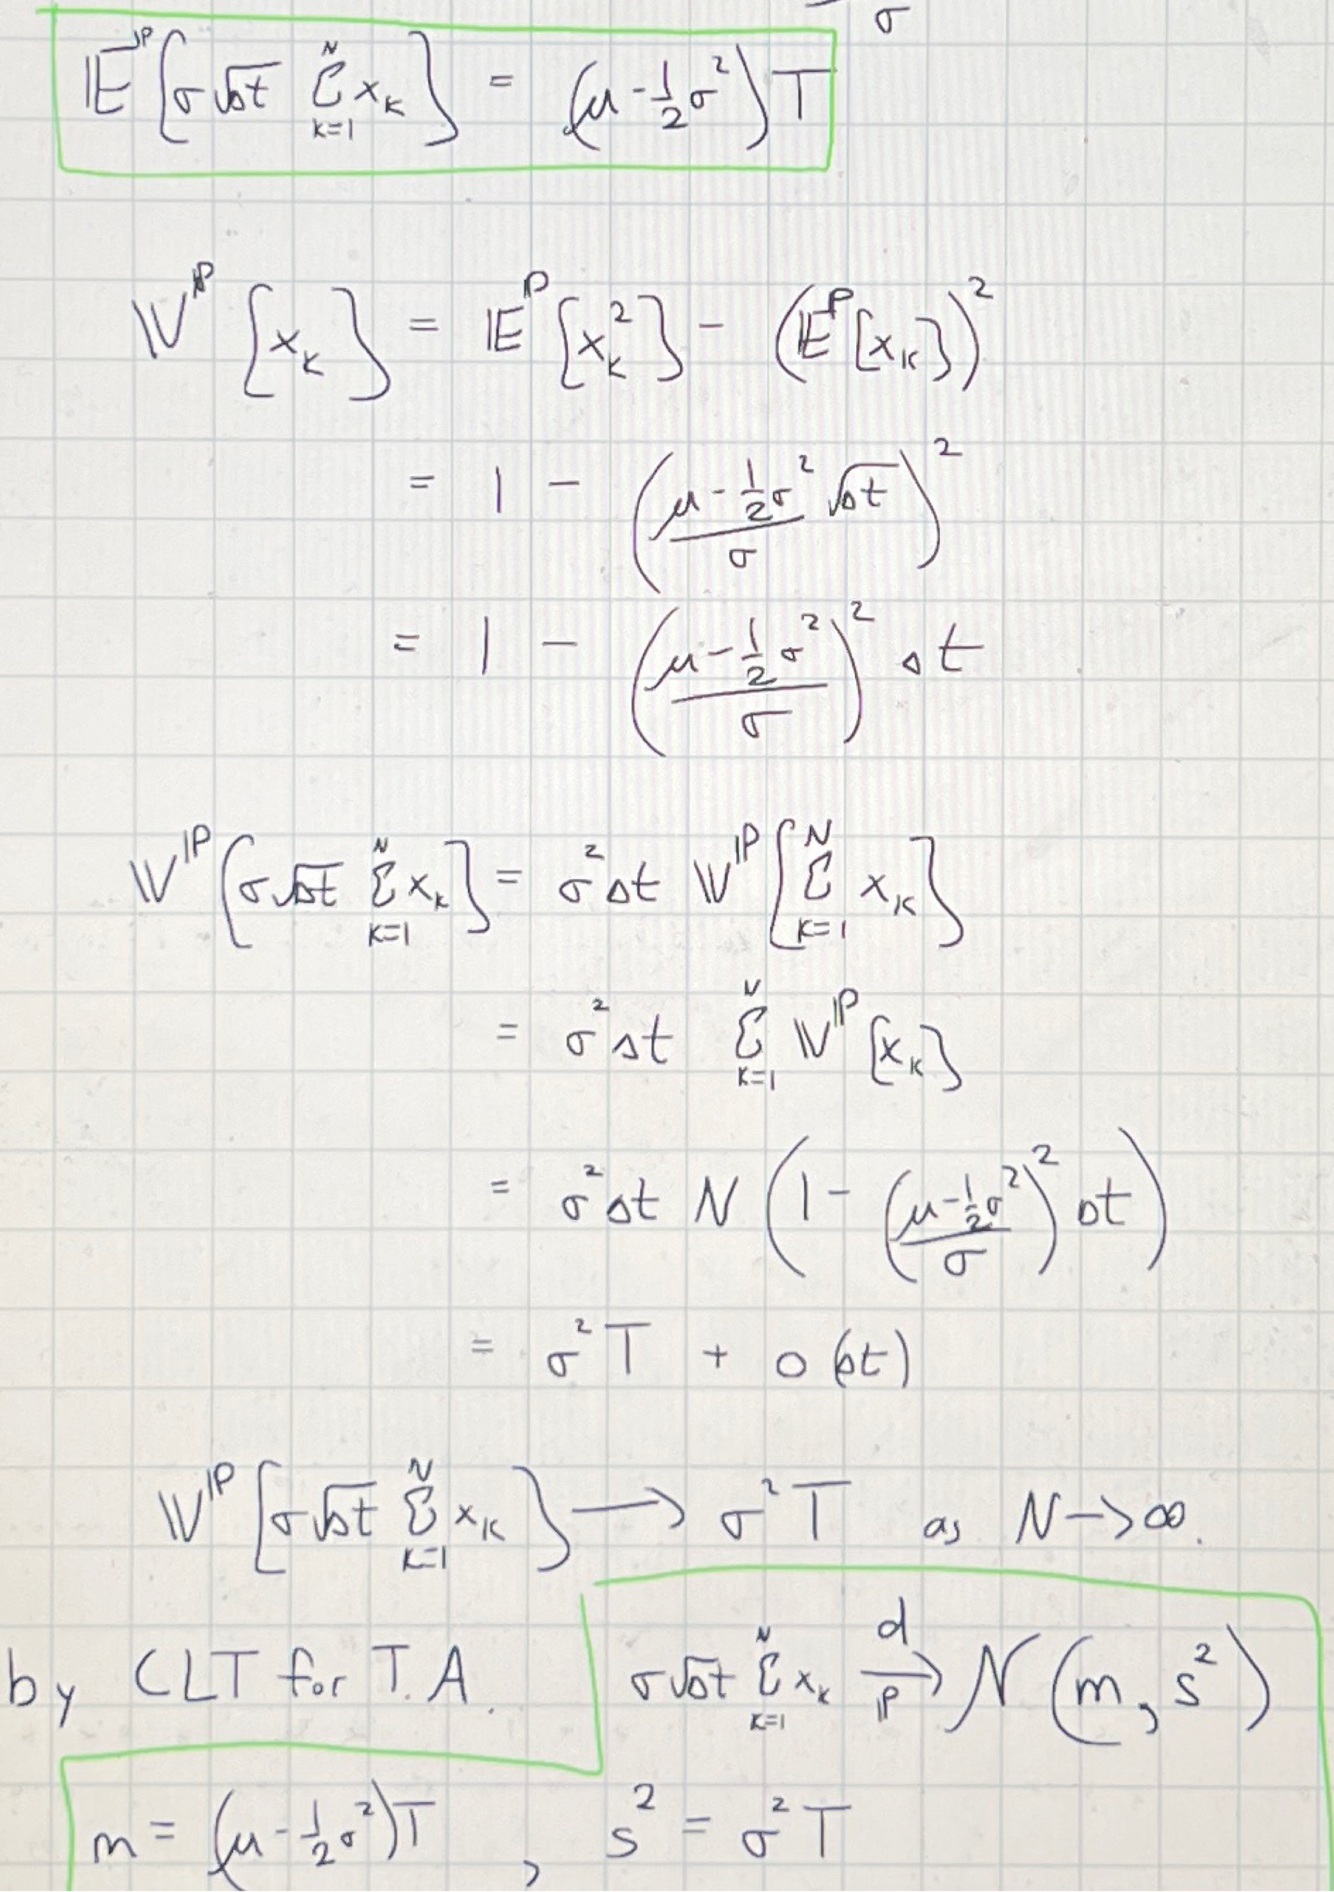 σ
𝔼^ℙ[σ√Δt Σ_{k=1}^{N} x_k] = (μ - ½σ²)T
𝕍^ℙ[x_k] = 𝔼^ℙ[x_k²] - (𝔼^ℙ[x_k])²
= 1 - ((μ - ½σ²)/σ √Δt)²
= 1 - ((μ - ½σ²)/σ)² Δt
𝕍^ℙ[σ√Δt Σ_{k=1}^{N} x_k] = σ²Δt 𝕍^ℙ[Σ_{k=1}^{N} x_k]
= σ²Δt Σ_{k=1}^{N} 𝕍^ℙ[x_k]
= σ²Δt N (1 - ((μ - ½σ²)/σ)² Δt)
= σ²T + o(Δt)
𝕍^ℙ[σ√Δt Σ_{k=1}^{N} x_k] ⟶ σ²T as N → ∞.
by CLT for T.A. σ√Δt Σ_{k=1}^{N} x_k →^d_ℙ N(m, s²)
m = (μ - ½σ²)T , s² = σ²T